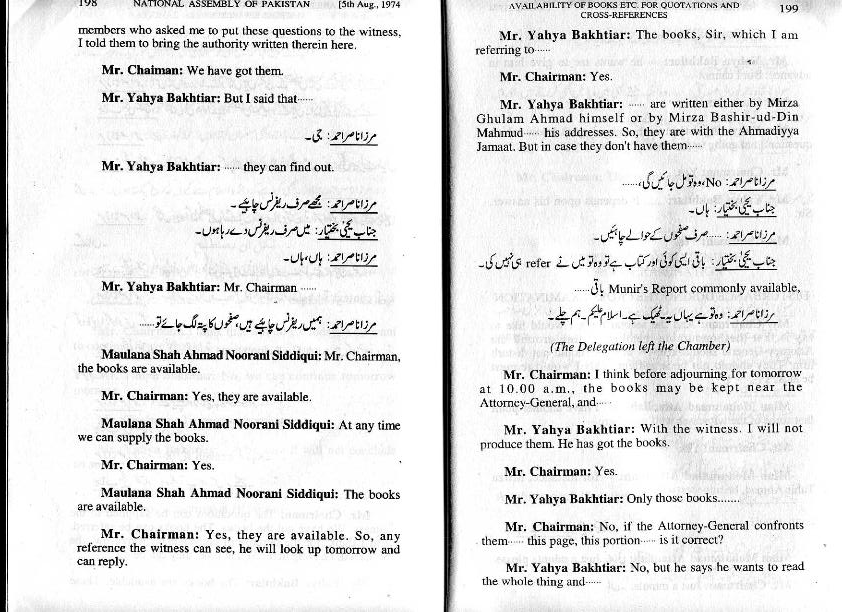 198 NATIONAL ASSEMBLY OF PAKISTAN [5th Aug., 1974
members who asked me to put these questions to the witness,
I told them to bring the authority written therein here.
Mr. Chaiman: We have got them.
Mr. Yahya Bakhtiar: But I said that······
مرزا ناصر احمد: جی۔
Mr. Yahya Bakhtiar: ······ they can find out.
مرزا ناصر احمد: مجھے صرف ریفرنس چاہیے۔
جناب یحییٰ بختیار: میں صرف ریفرنس دے رہا ہوں۔
مرزا ناصر احمد: ہاں، ہاں۔
Mr. Yahya Bakhtiar: Mr. Chairman ······
مرزا ناصر احمد: ہمیں ریفرنس چاہیے ہیں، صفحوں کا پتہ لگ جائے تو······
Maulana Shah Ahmad Noorani Siddiqui: Mr. Chairman,
the books are available.
Mr. Chairman: Yes, they are available.
Maulana Shah Ahmad Noorani Siddiqui: At any time
we can supply the books.
Mr. Chairman: Yes.
Maulana Shah Ahmad Noorani Siddiqui: The books
are available.
Mr. Chairman: Yes, they are available. So, any
reference the witness can see, he will look up tomorrow and
can reply.
AVAILABILITY OF BOOKS ETC. FOR QUOTATIONS AND
CROSS-REFERENCES
199
Mr. Yahya Bakhtiar: The books, Sir, which I am
referring to·····
Mr. Chairman: Yes.
Mr. Yahya Bakhtiar: ······ are written either by Mirza
Ghulam Ahmad himself or by Mirza Bashir-ud-Din
Mahmud····· his addresses. So, they are with the Ahmadiyya
Jamaat. But in case they don't have them·····
مرزا ناصر احمد: No، وہ تو مل جائیں گی، ······
جناب یحییٰ بختیار: ہاں۔
مرزا ناصر احمد: ······ صرف صفحوں کے حوالے چاہئیں۔
جناب یحییٰ بختیار: باقی ایسی کوئی اور کتاب ہے تو وہ تو میں نے refer ہی نہیں کی۔
باقی Munir's Report commonly available, ······
مرزا ناصر احمد: وہ تو ہے یہاں یہ۔ ٹھیک ہے۔ اسلام علیکم۔ ہم چلے۔
(The Delegation left the Chamber)
Mr. Chairman: I think before adjourning for tomorrow
at 10.00 a.m., the books may be kept near the
Attorney-General, and·····
Mr. Yahya Bakhtiar: With the witness. I will not
produce them. He has got the books.
Mr. Chairman: Yes.
Mr. Yahya Bakhtiar: Only those books.......
Mr. Chairman: No, if the Attorney-General confronts
them····· this page, this portion····· is it correct?
Mr. Yahya Bakhtiar: No, but he says he wants to read
the whole thing and·····